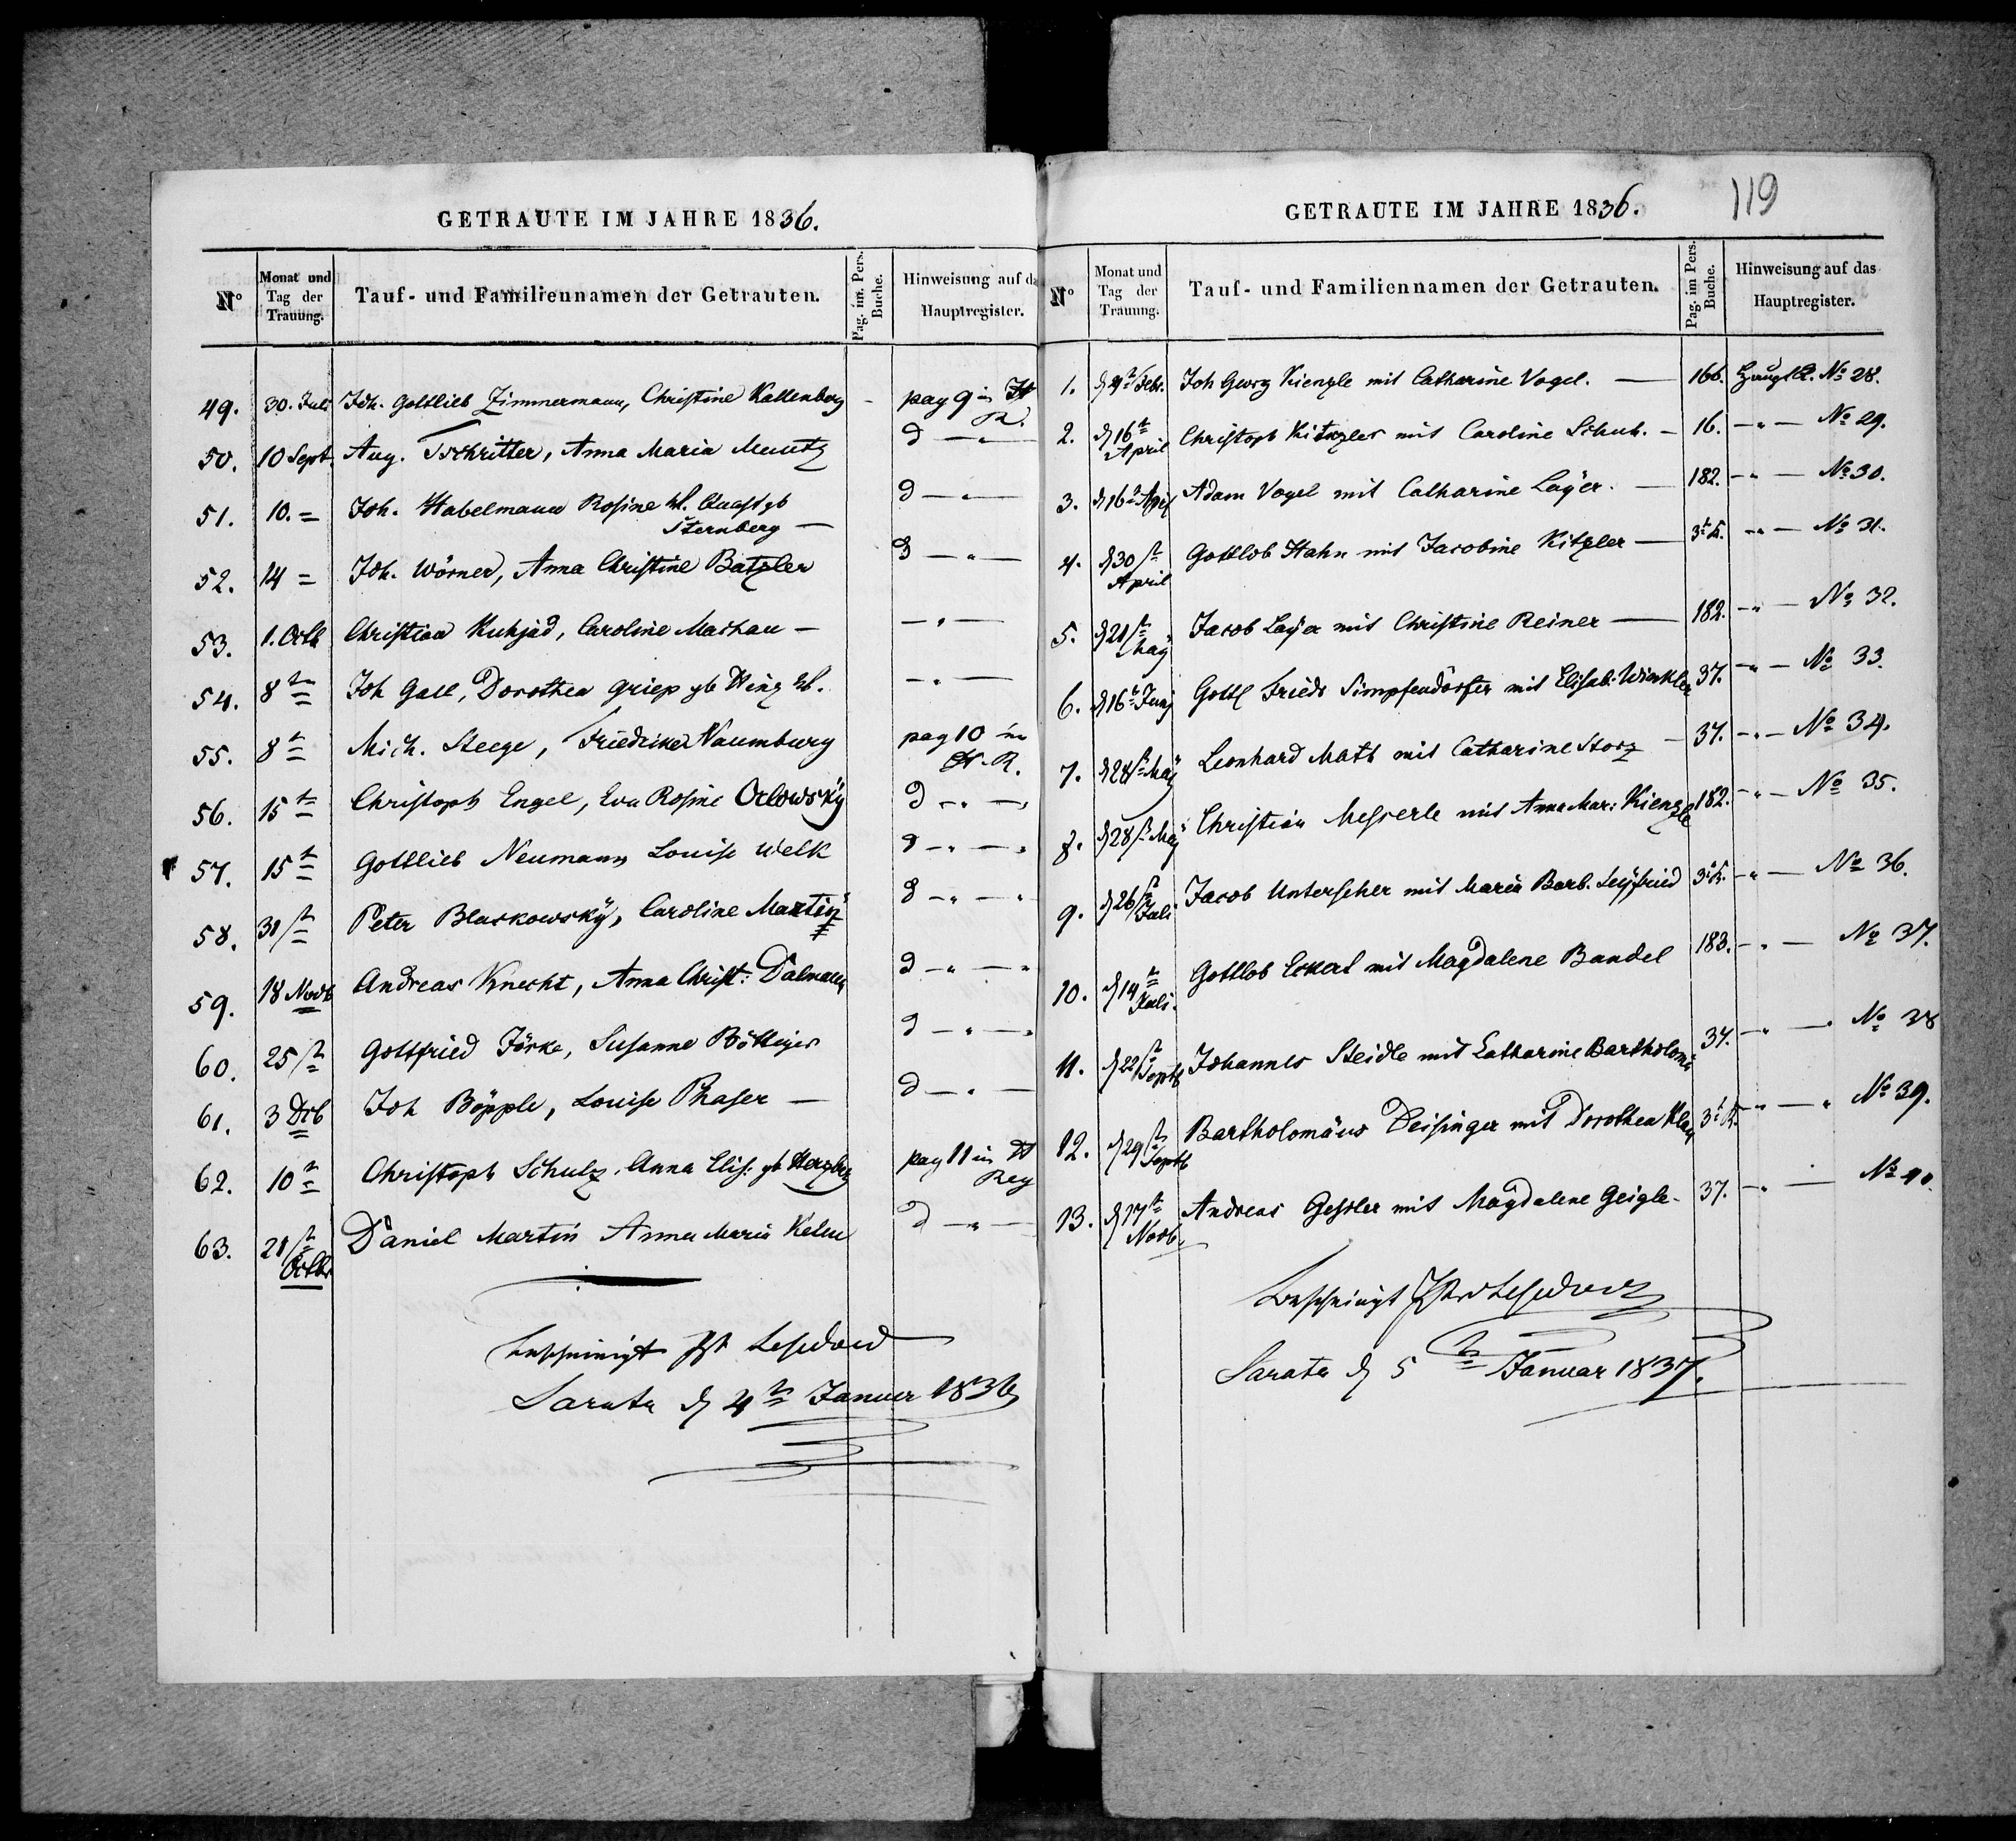 GETRAUTE IM JAHRE 1836.
N° Monat und Tag der Trauung. Tauf- und Familiennamen der Getrauten. Pag. im. Pers. Buche. Hinweisung auf da Hauptregister.
49. 30. Juli Joh. Gottlieb Zimmermann, Christine Kallenberg - pag 9 in H R.
50. 10 Sept. Aug. Tschritter, Anna Maria Muntz d — " —
51. 10. = Joh. Habelmann Rosine W. Quast gb d — " —
Sternberg —
52. 14 = Joh. Wörner, Anna Christine Batzler d — " —
53. 1. Octb Christian Kuhjad, Caroline Machau — — " —
54. 8t Joh Gall, Dorothea Griep gb Hinz W. — " —
55. 8t Mich. Steege, Friedricke Naumburg pag 10 im H-R.
56. 15t Christoph Engel, Eva Rosine Orlowsky d — " —
57. 15t Gottlieb Neumann Louise Welk d — " —
58. 31st Peter Blaskowsky, Caroline Martin d — " —
59. 18 Novb Andreas Knecht, Anna Christ: Dalmann d — " —
60. 25st Gottfried Jörke, Susanne Böttiger d — " —
61. 3 Dcb Joh Böpple, Louise Phaser — d — " —
62. 10t Christoph Schulz Anna Elis: gb Herzberg pag 11 in H Reg
63. 21st Octbr Daniel Martin Anna Maria Kelm d — " —
Sarata d 4t Januar 1836
GETRAUTE IM JAHRE 1836.
119
N° Monat und Tag der Trauung. Tauf- und Familiennamen der Getrauten. Pag. im Pers. Buche. Hinweisung auf das Hauptregister.
1. d 4t Febr. Joh Georg Kienzle mit Catharine Vogel. — 166. Haupt R. No 28.
2. d 16t April Christoph Kitzler mit Caroline Schuh. — 16. — " — No 29.
3. d 16t April Adam Vogel mit Catharine Layer. — 182. — " — No 30.
4. d 30st April Gottlob Hahn mit Jacobine Kitzler — — " — No 31.
5. d 21st May Jacob Layer mit Christine Reiner — 182. — " — No 32.
6. d 16t Junj Gottl Friedr Simpfendörfer mit Elisab: Winkler 37. — " — No 33.
7. d 28st May Leonhard Math mit Catharine Storz — 37. — " — No 34.
8. d 28st May Christian Messerle mit Anna Mar: Kienzle 182. — " — No 35.
9. d 26st Juli Jacob Unterseher mit Maria Barb. Seyfried — " — No 36.
10. d 14t Juli. Gottlob Eckert mit Magdalene Bandel 183. — " — No 37.
11. d 22st Septb Johannes Steidle mit Catharine Bartholomä 37. — " — No 38
12. d 29st Septb Bartholomäus Deisinger mit Dorothea Klay — " — No 39.
13. d 17t Novb. Andreas Gessler mit Magdalene Geigle - 37. — " — No 40.
Sarata d 5t Januar 1837.